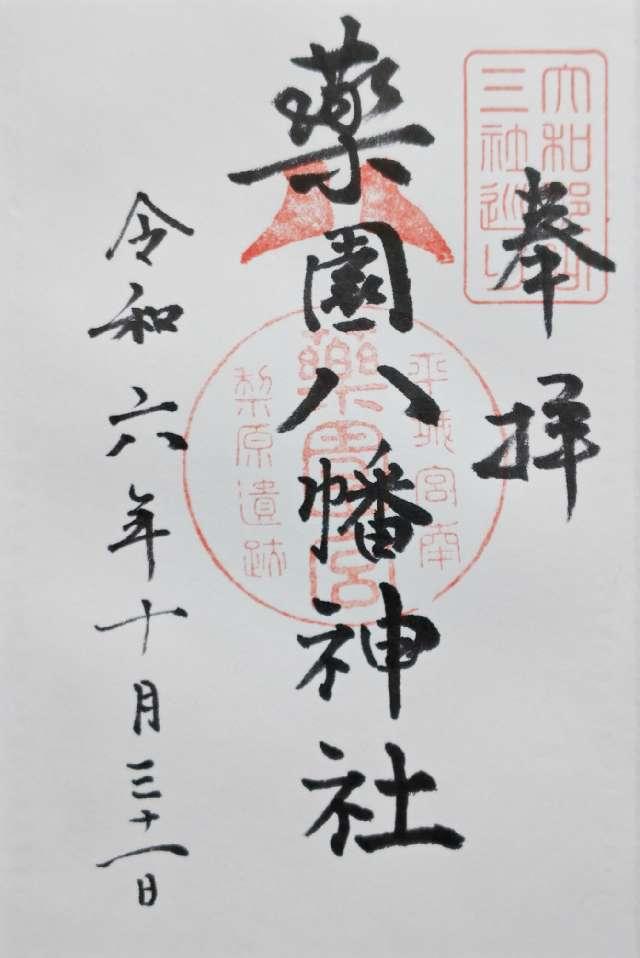 大和郡山
三社巡り
奉拝
薬園八幡神社
平城宮南
薬園宮
梨原遺跡
令和六年十月三十一日